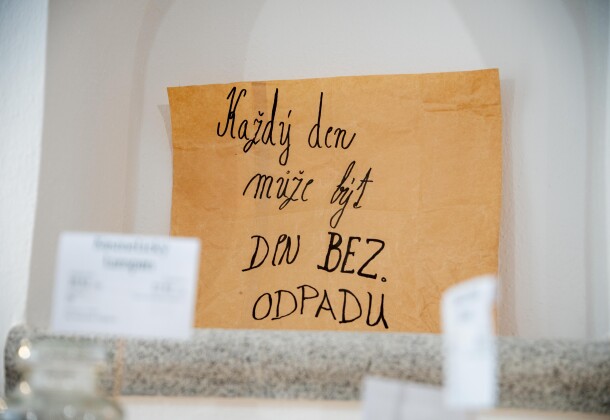 Každý den
může být
DEN BEZ.
ODPADU